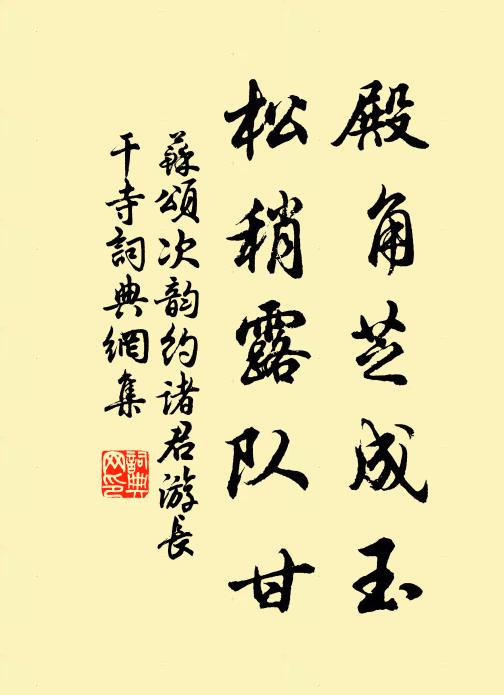 殿角芝成玉
松稍露队甘
蘇頌次韵約諸君游長
干寺詞典網集
詞典网印